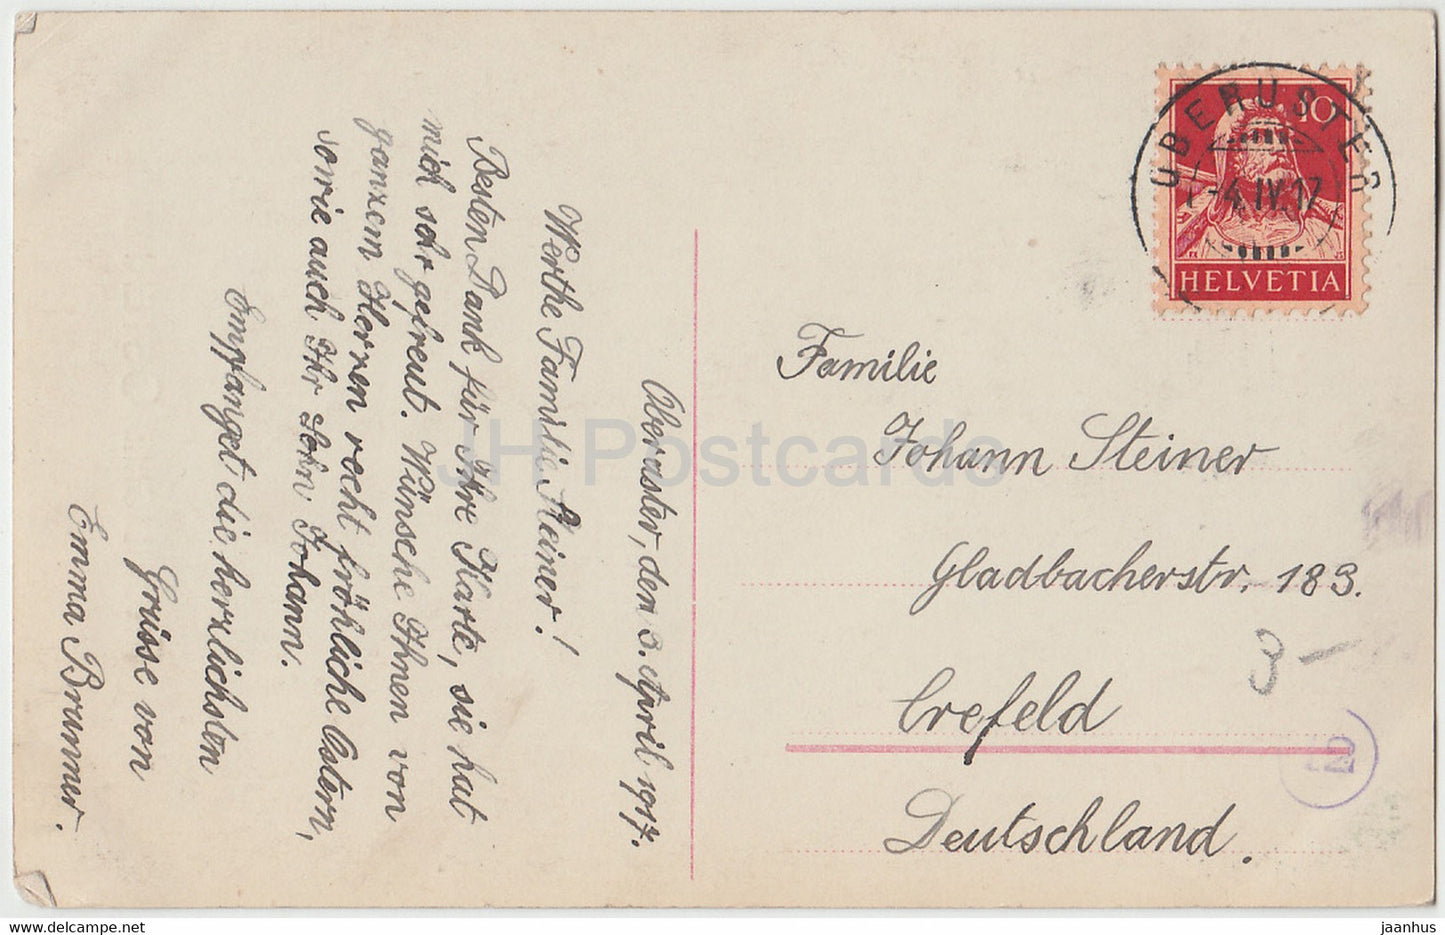 Oberuster, den 3. April 1917.
Werthe Familie Steiner!
Besten Dank für Ihre Karte, sie hat
mich sehr gefreut. Wünsche Ihnen von
ganzem Herzen recht fröhliche Ostern,
sowie auch Ihr Sohn Johann.
Empfanget die herzlichsten
Grüsse von
Emma Brunner.
OBERUSTER
-4.IV.17
10
HELVETIA
Familie
Johann Steiner
Gladbacherstr. 183.
Crefeld
Deutschland.
3-
JH Postcards
delcampe.net
jaanhus